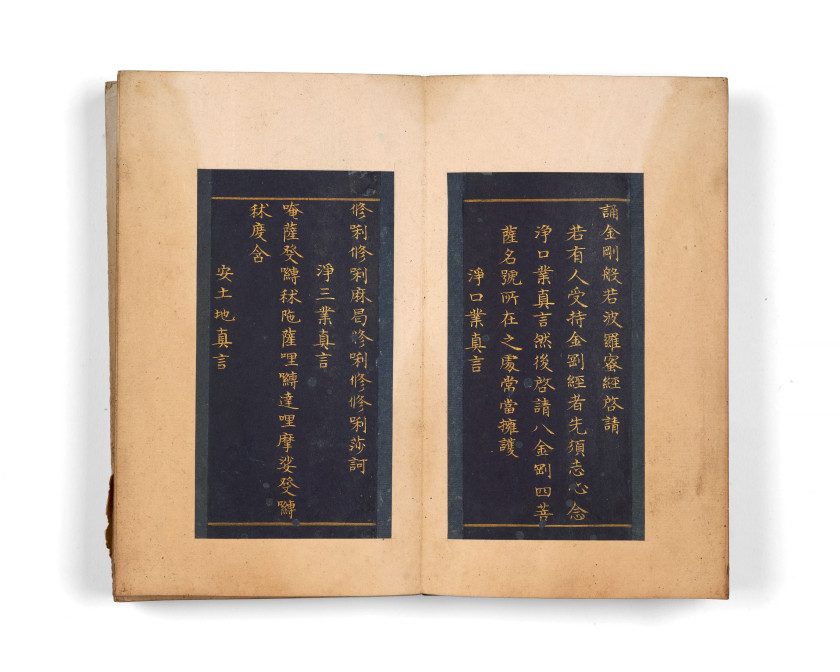 誦金剛般若波羅蜜經啓請
若有人受持金剛經者先須志心念
淨口業真言然後啓請八金剛四菩
薩名號所在之處常當擁護
淨口業真言
修唎修唎麻曷修唎修修唎莎訶
淨三業真言
唵薩發嚩秫陁薩哩嚩達哩摩娑發嚩
秫度含
安土地真言